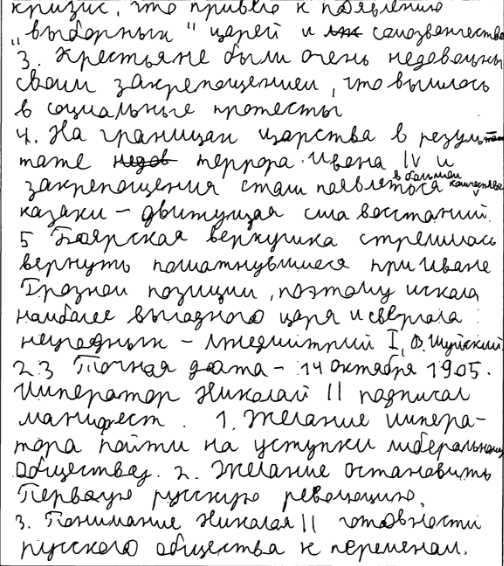 кризис, что привело к появлению
"выборных" царей и самозванчества
3. Крестьяне были очень недовольны
своим закрепощением, что вылилось
в социальные протесты
4. На границах царства в резуль-
тате террора Ивана IV и
закрепощения стали появляться в большом количестве
казаки – движущая сила восстаний.
5 Боярская верхушка стремилась
вернуть пошатнувшиеся при Иване
Грозном позиции, поэтому искала
наиболее выгодного царя и свергала
неугодных – Лжедмитрий I, В. Шуйский
23 Точная дата – 14 октября 1905.
Император Николай II подписал
манифест. 1. Желание импера-
тора пойти на уступки либеральному
обществу. 2. Желание остановить
Первую русскую революцию.
3. Понимание Николая II готовности
русского общества к переменам.